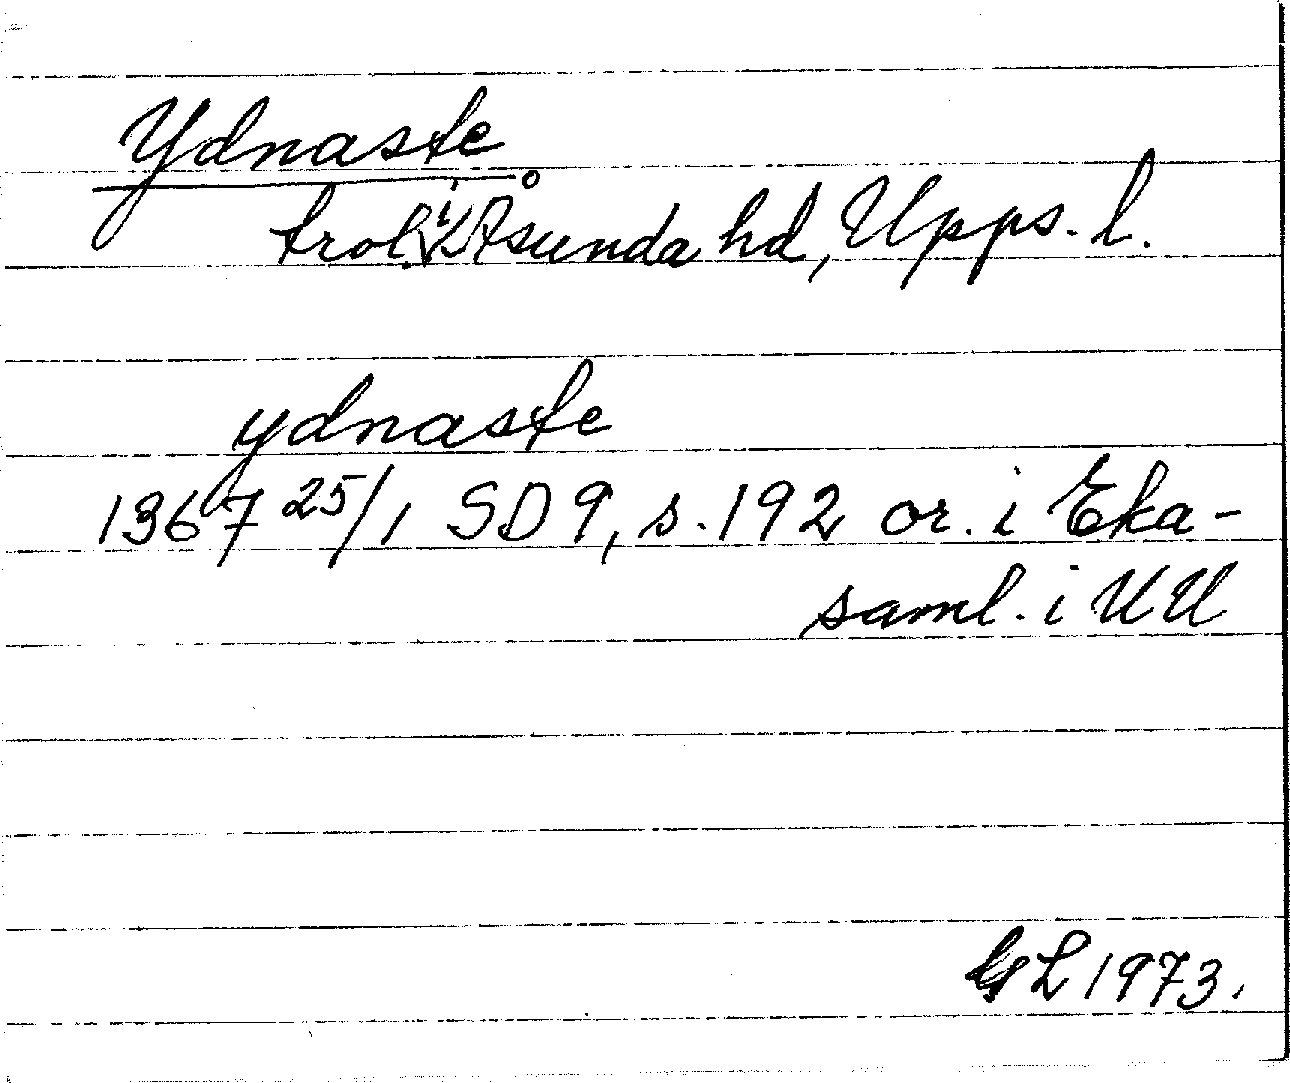 Ydnaste
trol. i Åsunda hd, Upps. l.
ydnaste
1367 25/1 SD 9, s. 192 or. i Eka-
saml. i UU
GL 1973.